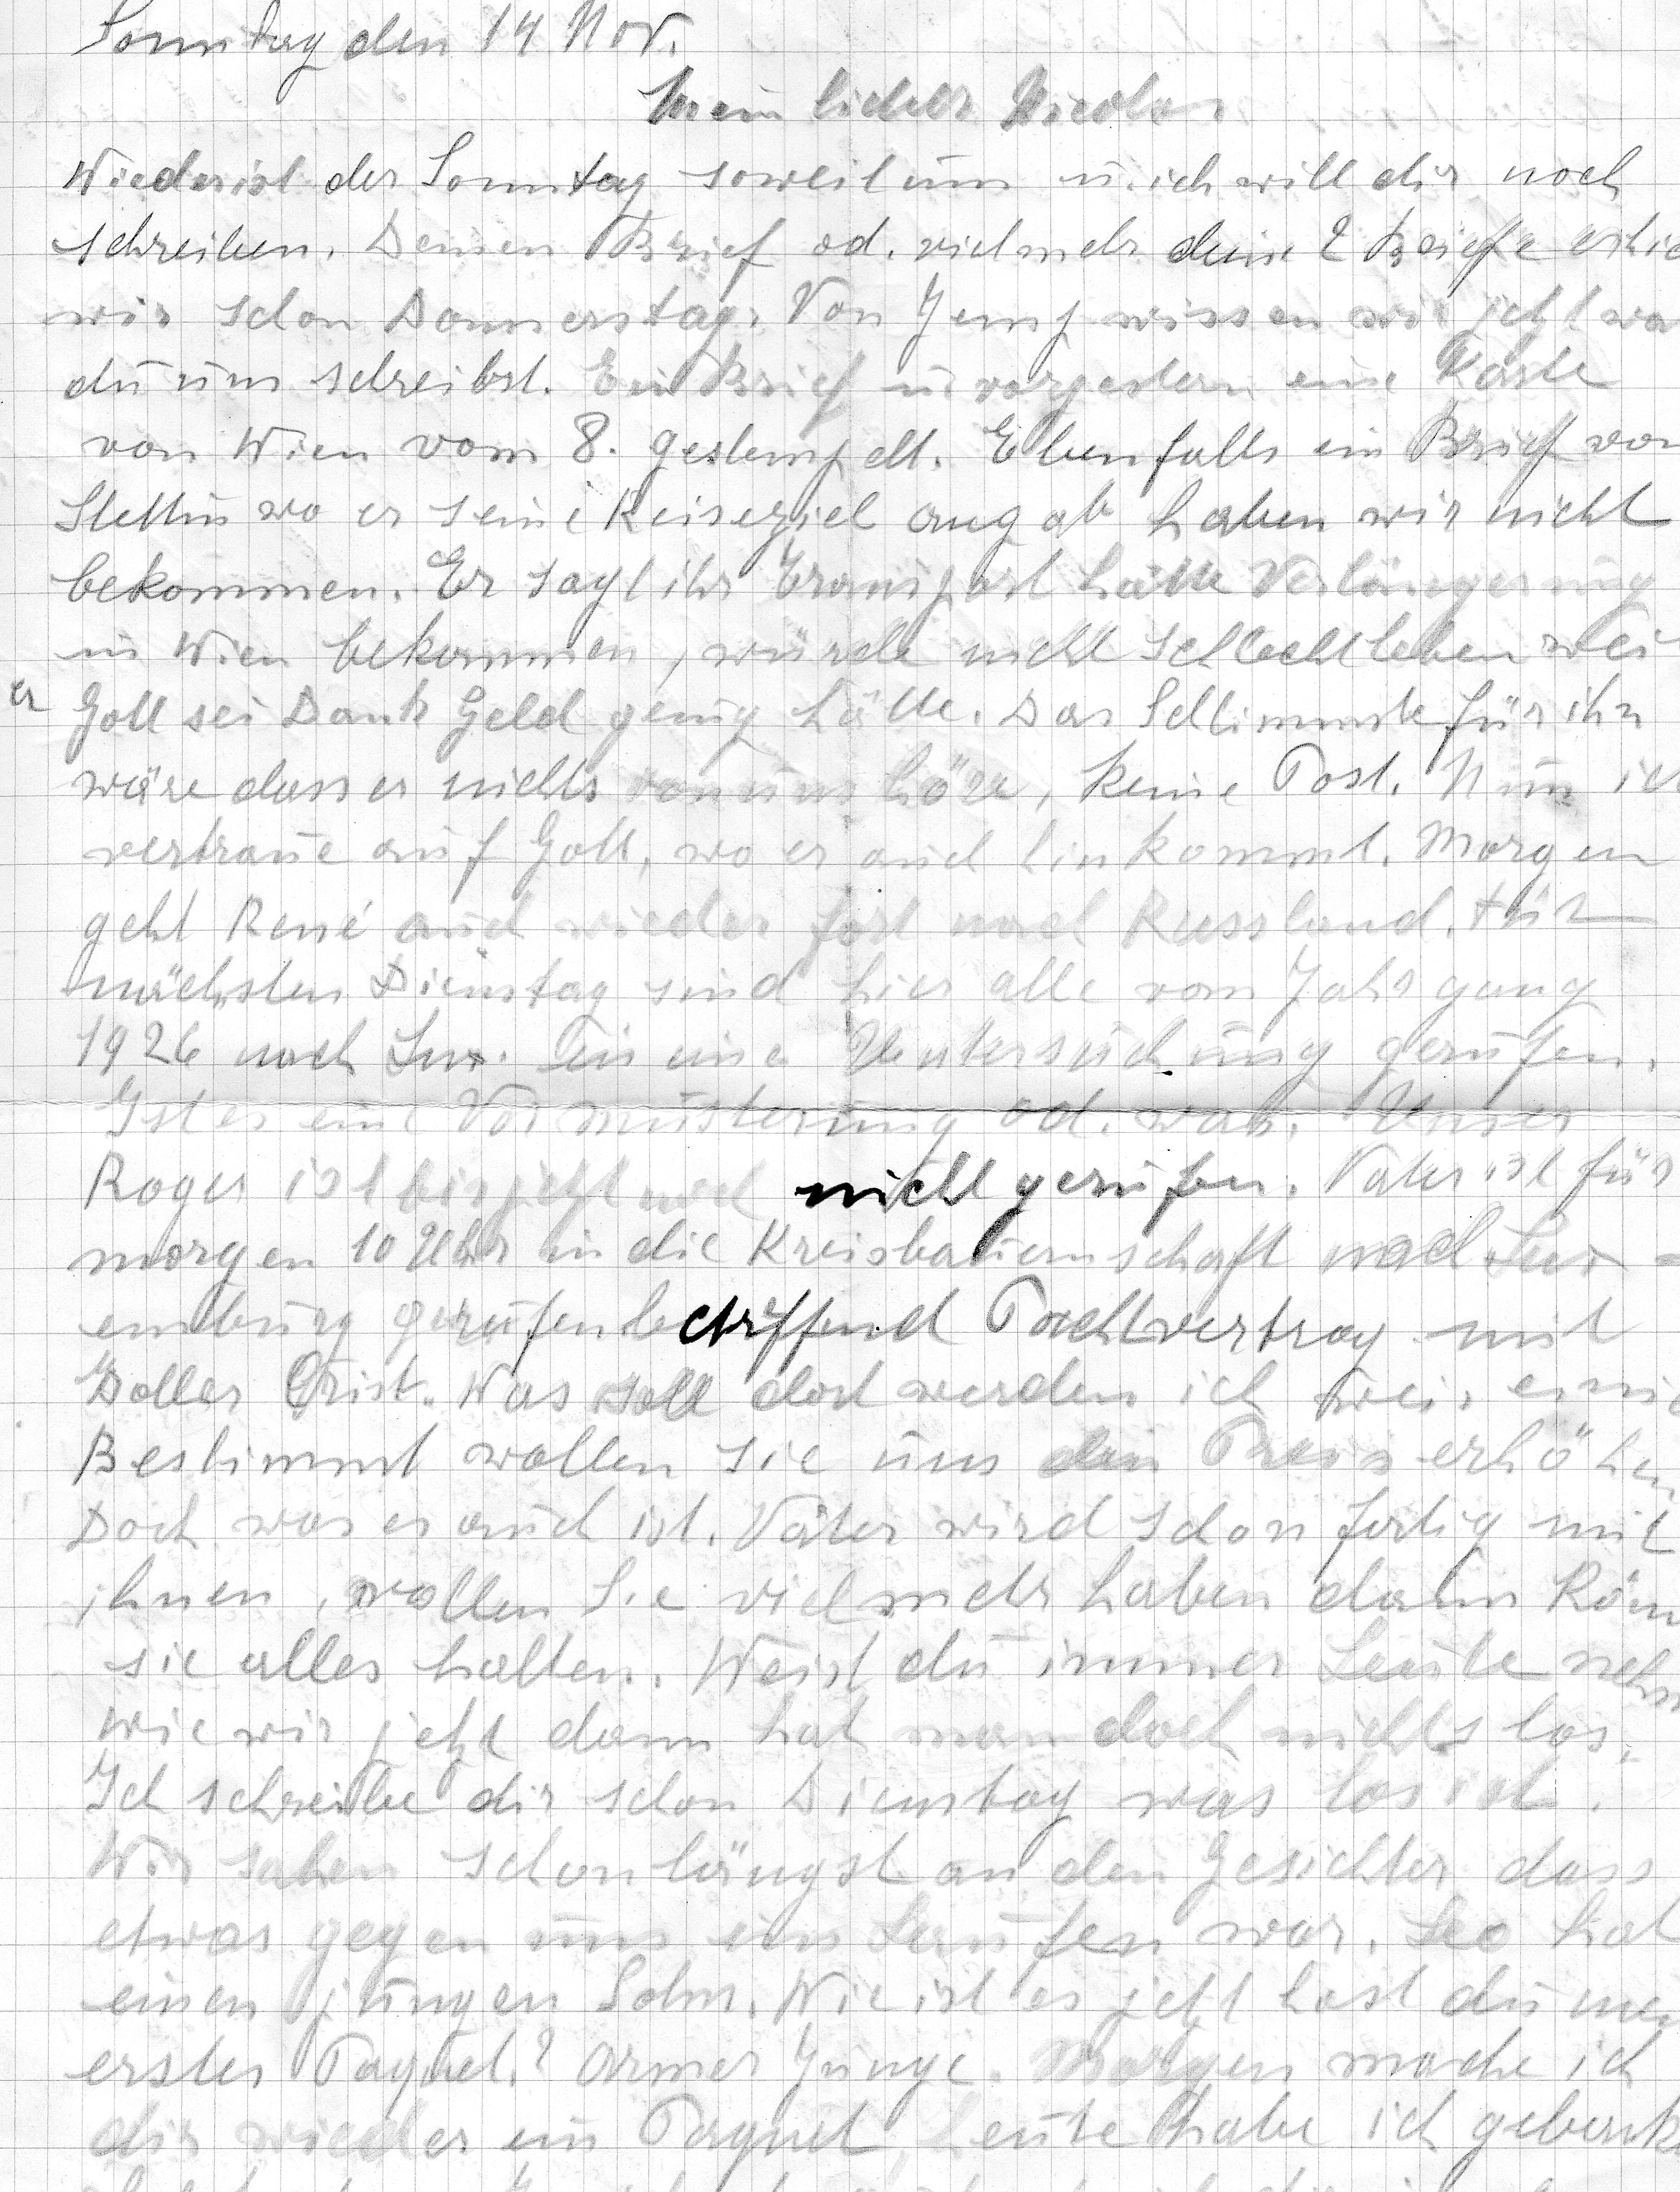 Sonntag den 14 Nov.
Mein lieber Nicolas
Wieder ist der Sonntag soweit um u. ich will dir noch
schreiben. Deinen Brief od. vielmehr deine 2 Briefe erhie
wir schon Donnerstag. Von Jemp wissen wir jetzt wa
du uns schreibst. Ein Brief u. vorgestern eine Karte
von Wien vom 8. gestempelt. Ebenfalls ein Brief von
Stettin wo er seine Reiseziel angab haben wir nicht
bekommen. Er sagt ihr Transport hätte Verlängerung
in Wien bekommen, würde nicht schlecht leben wei
er Gott sei Dank Geld genug hätte. Das Schlimmste für ihn
wäre dass er nichts von uns höre, keine Post. Nun ich
vertraue auf Gott, wo er auch hinkommt. Morgen
geht René auch wieder fort nach Russland. Für
nächsten Dienstag sind hier alle vom Jahrgang
1926 nach Lux. in eine Untersuchung gerufen.
Ist es eine Vormusterung od. was. Unser
Roger ist bis jetzt noch nicht gerufen. Vater ist für
morgen 10 Uhr in die Kreisbauernschaft nach Lux-
emburg gerufen betriffend Pachtvertrag mit
Doller Crist. Was soll dort werden ich weis
Bestimmt wollen sie uns den Preis erhöhen
Doch was es auch ist. Vater wird schon fertig mit
ihnen, wollen Sie vielmehr haben dann Könn
sie alles halten. Weist du immer Leute nehm
wie wir jetzt dann hat man doch nichts los.
Ich schreibe dir schon Dienstag was los ist.
Wir sahen schon längst an den Gesichter dass
etwas gegen uns im Laufen war. Leo hat
einen jungen Sohn. Wie ist es jetzt hast du mei
erstes Paquet? Armer Junge. Morgen mache ich
dir wieder ein Paquet, heute habe ich geback